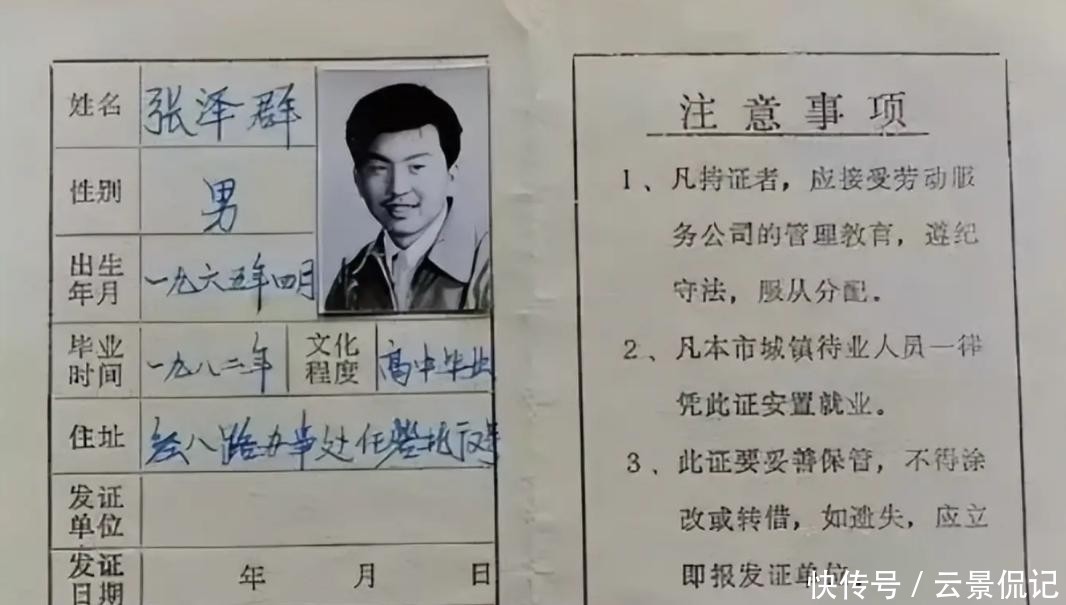 姓名 张泽群
性别 男
出生年月 一九六五年四月
毕业时间 一九八二年 文化程度 高中毕业
住址 经八路办事处任砦北
发证单位
发证日期 年 月 日
注意事项
1、凡持证者，应接受劳动服
务公司的管理教育，遵纪
守法，服从分配。
2、凡本市城镇待业人员一律
凭此证安置就业。
3、此证要妥善保管，不得涂
改或转借，如遗失，应立
即报发证单位。
快传号 / 云景侃记